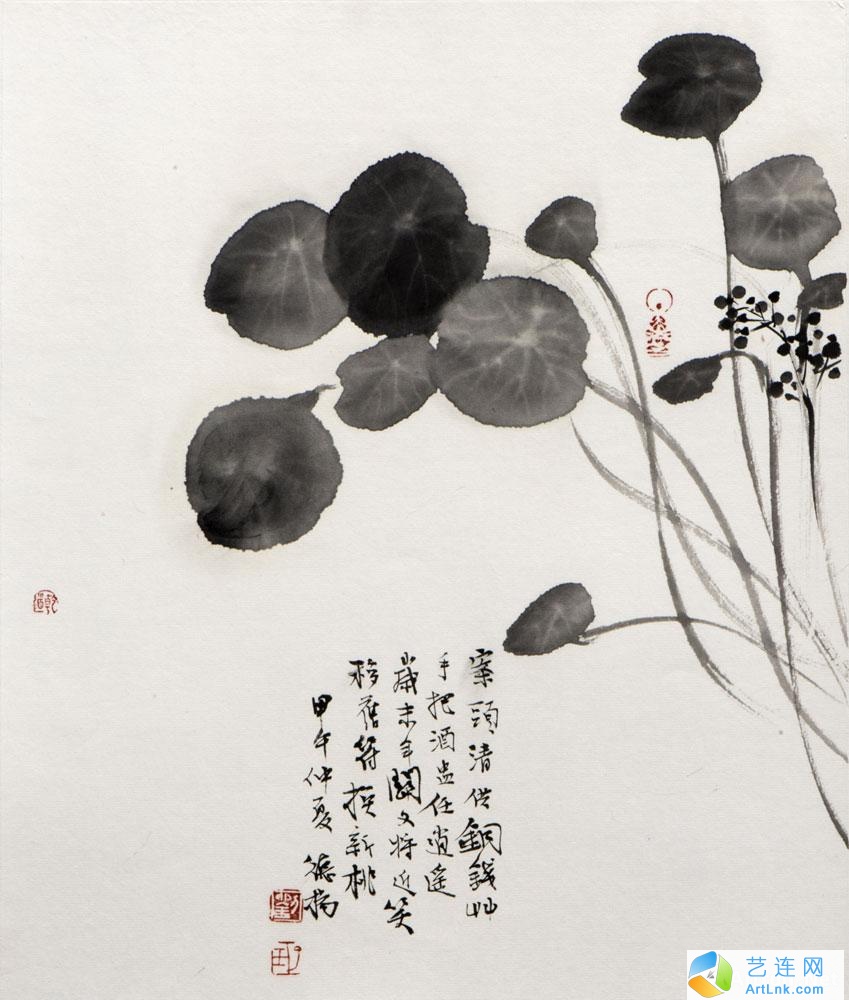 案頭清供銅錢艸
手把酒盅任逍遥
歲末年關又将近笑
移舊符换新桃
甲午仲夏 德
劉
艺连网
ArtLnk.com